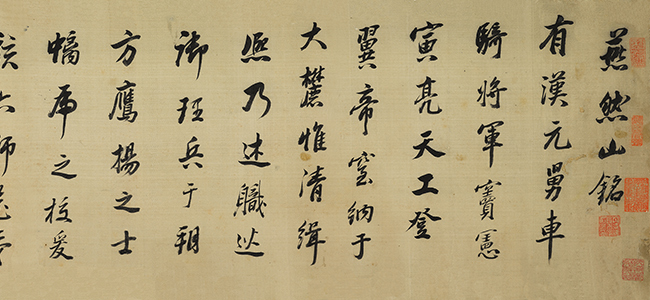 燕然山銘
有漢元舅車
騎將軍竇憲
寅亮天工登
翼帝室納于
大麓惟清緝
熙乃述職巡
御理兵于朔
方鷹揚之士
螭虎之校爰
六師